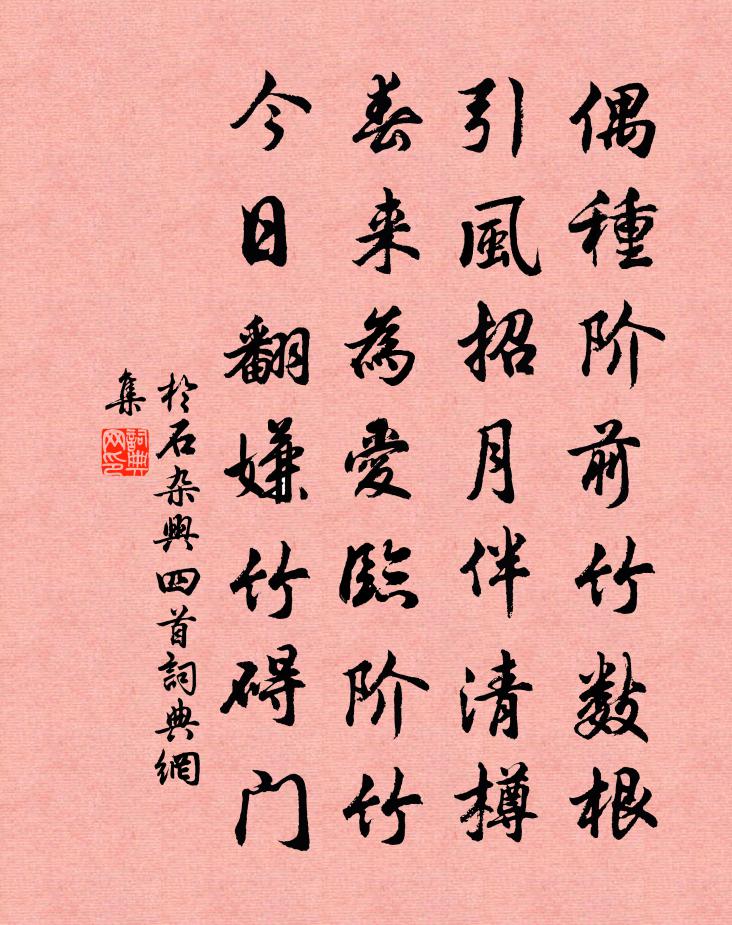 偶種阶前竹数根
引風招月伴清樽
春来為愛臨阶竹
今日翻嫌竹碍门
於石杂興四首詞典網
集
詞典
网印